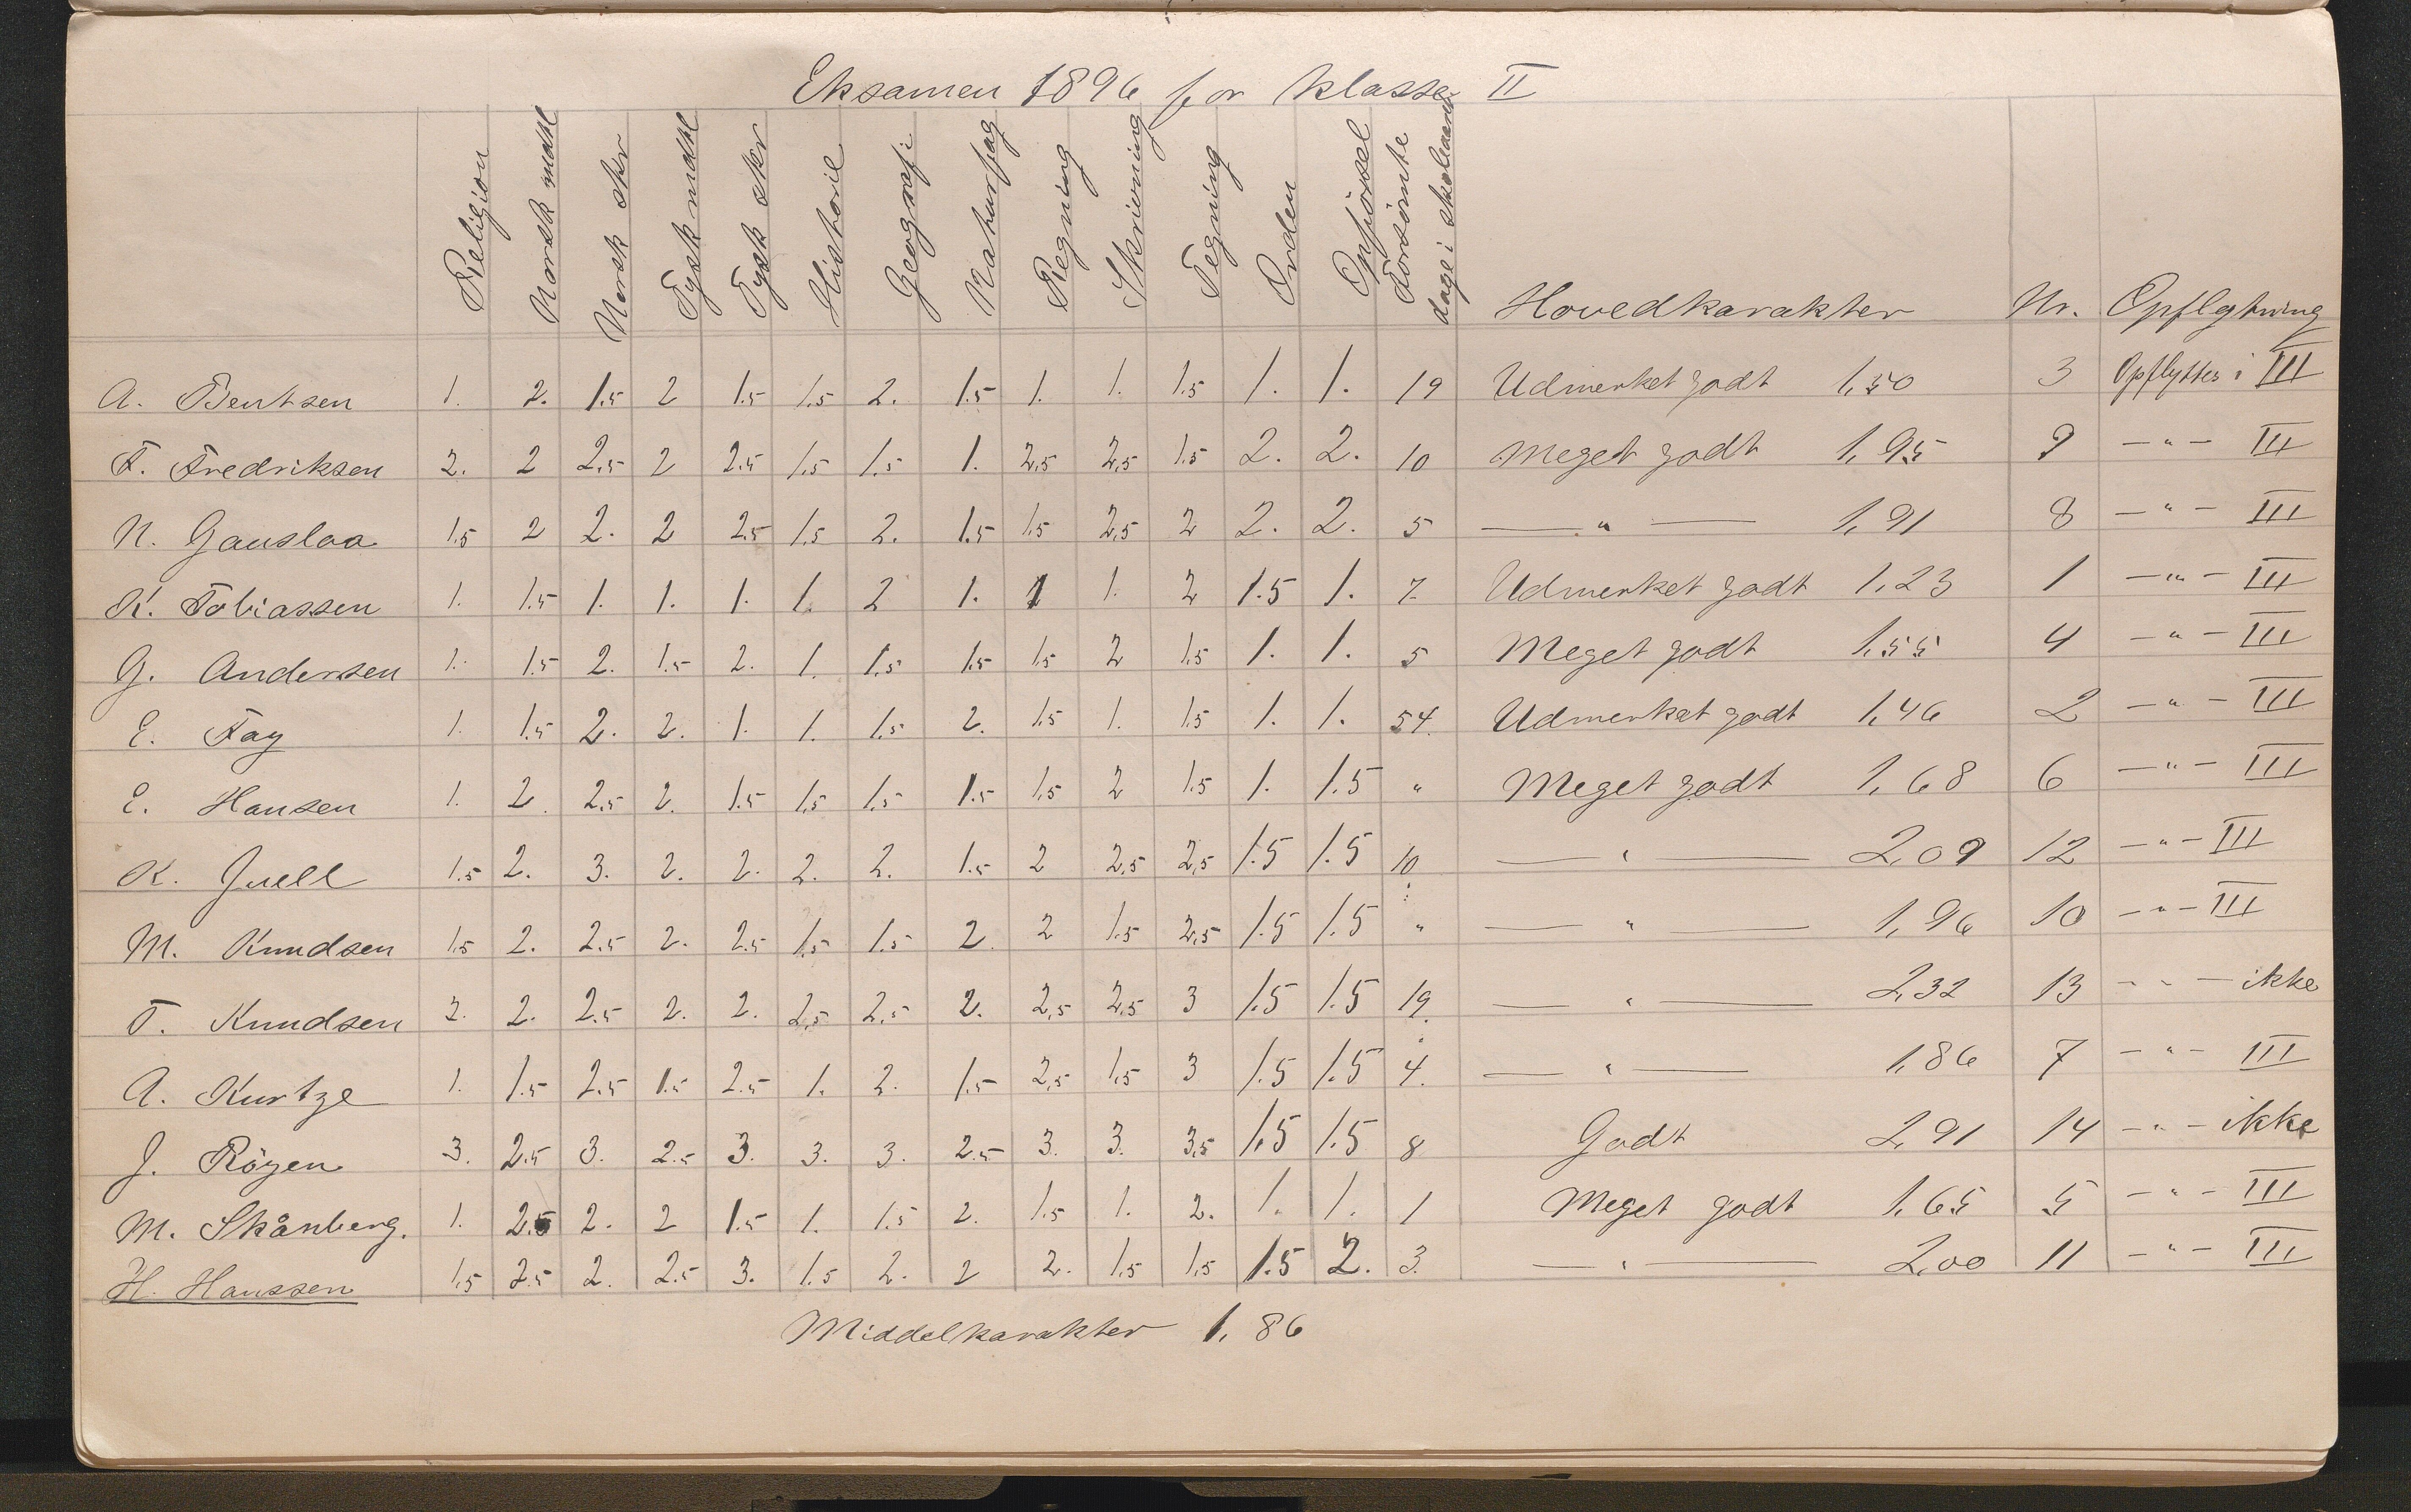 Eksamen 1896 for klasse II
Religion Norsk mdtl Norsk skr Tysk mdtl Tysk skr Historie Geografi Naturfag Regning Skrivning Tegning Orden Opførsel Forsömte dage i skoleaaret Hovedkarakter Nr. Opflytning
A. Bentsen 1. 2. 1.5 2 1.5 1.5 2. 1.5 1. 1. 1.5 1. 1. 19 Udmerket godt 1,50 3 Opflyttes i III
F. Fredriksen 2. 2 2.5 2 2.5 1.5 1.5 1. 2,5 2,5 1.5 2. 2. 10 Meget godt 1,95 9 —"— III
N. Gauslaa 1.5 2 2. 2 2.5 1.5 2. 1.5 1.5 2,5 2 2. 2. 5 —"— 1,91 8 —"— III
K. Tobiassen 1. 1.5 1. 1. 1. 1. 2 1. 1 1. 2 1.5 1. 7. Udmerket godt 1,23 1 —"— III
G. Andersen 1. 1.5 2. 1.5 2. 1. 1.5 1.5 1.5 2 1.5 1. 1. 5 Meget godt 1,55 4 —"— III
E. Fay 1. 1.5 2. 2. 1. 1. 1.5 2. 1.5 1. 1.5 1. 1. 54. Udmerket godt 1,46 2 —"— III
E. Hansen 1. 2. 2.5 2. 1.5 1.5 1.5 1.5 1.5 2 1.5 1. 1.5 " Meget godt 1,68 6 —"— III
K. Juell 1.5 2. 3. 2. 2. 2. 2. 1.5 2 2,5 2,5 1.5 1.5 10 —"— 2,09 12 —"— III
M. Knudsen 1.5 2. 2.5 2. 2.5 1.5 1.5 2. 2 1.5 2,5 1.5 1.5 " —"— 1,96 10 —"— III
T. Knudsen 3. 2. 2.5 2. 2. 2,5 2.5 2. 2,5 2,5 3 1.5 1.5 19. —"— 2,32 13 —"— ikke
A. Kurtze 1. 1.5 2.5 1.5 2.5 1. 2. 1.5 2,5 1.5 3 1.5 1.5 4. —"— 1,86 7 —"— III
J. Röyen 3. 2.5 3. 2.5 3. 3. 3. 2.5 3. 3. 3,5 1.5 1.5 8 Godt 2,91 14 —"— ikke
M. Skånberg. 1. 2.5 2. 2 1.5 1. 1.5 2. 1.5 1. 2. 1. 1. 1 Meget godt 1,65 5 —"— III
H. Hanssen 1.5 2.5 2. 2.5 3. 1.5 2. 2 2. 1.5 1.5 1.5 2. 3. —"— 2,00 11 —"— III
Middelkarakter 1,86